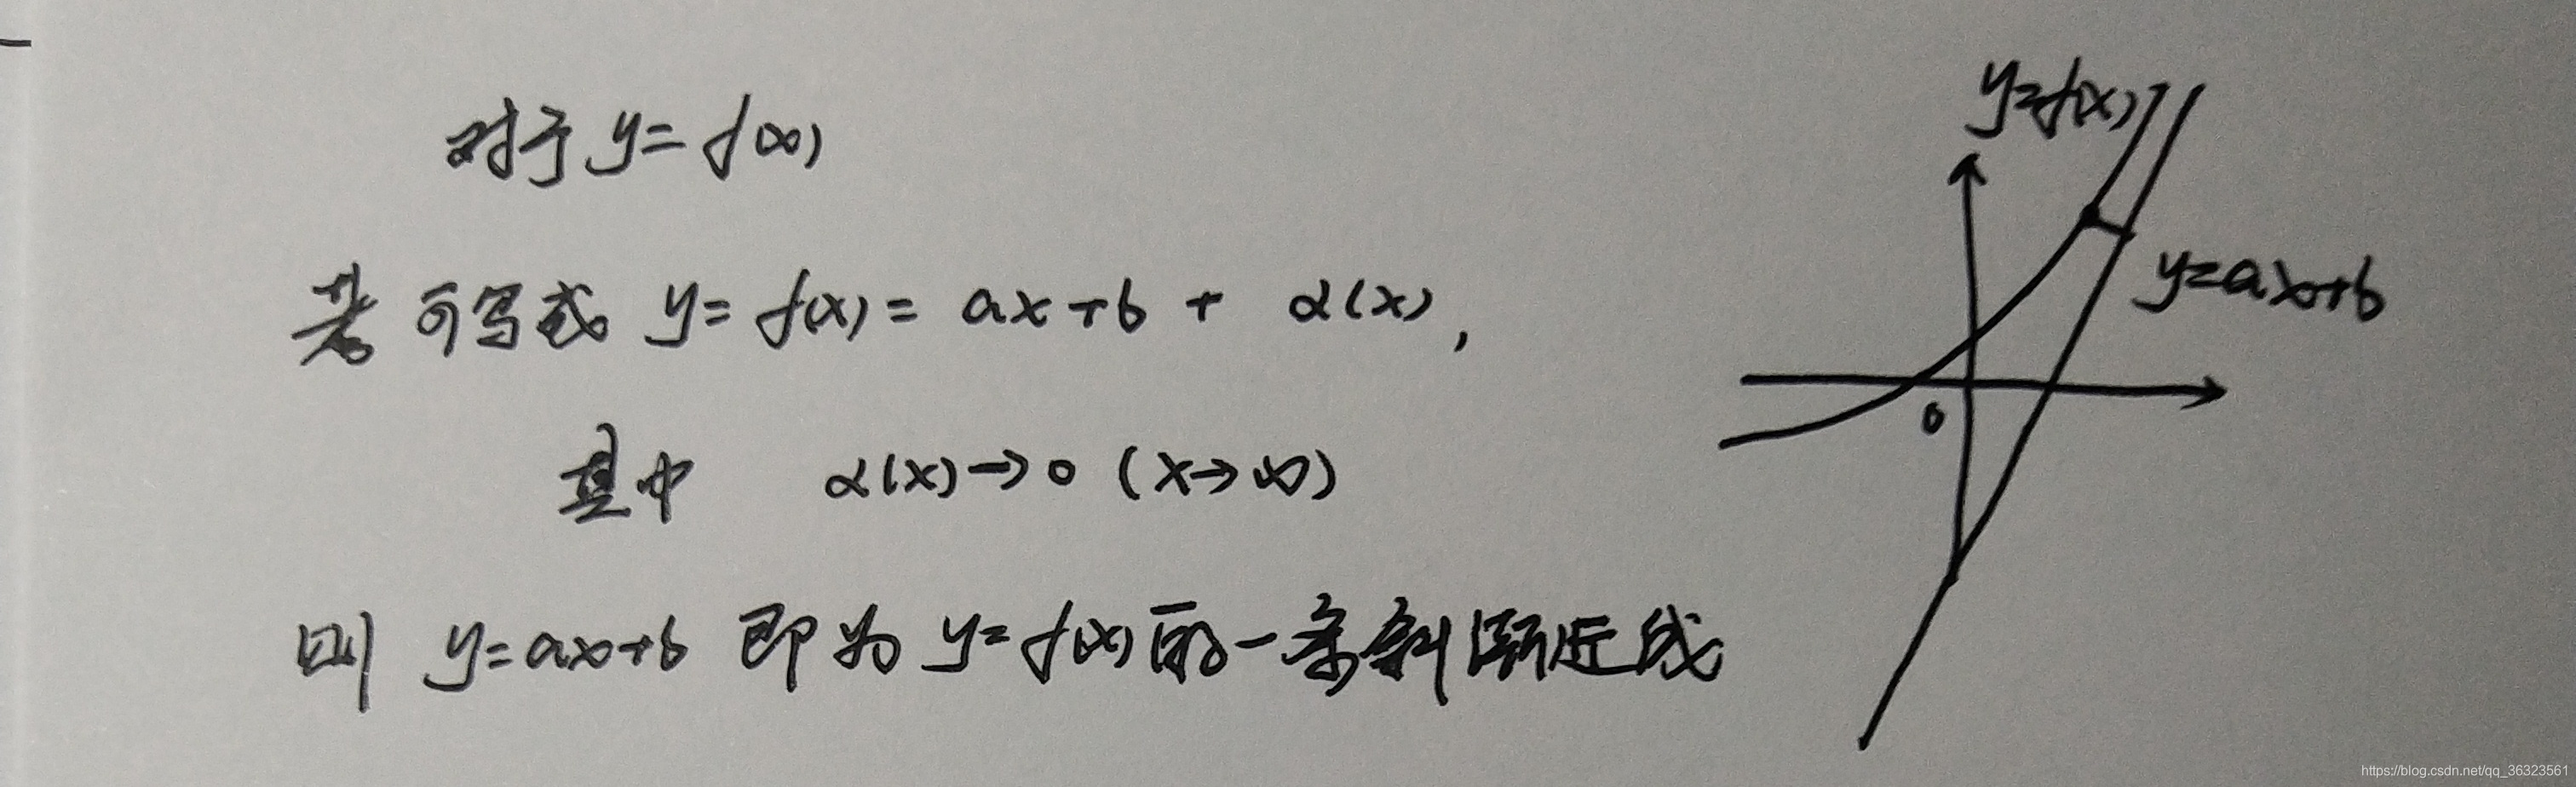 对于 y=f(x)
若可写成 y=f(x)=ax+b + α(x),
其中 α(x)→0 (x→∞)
则 y=ax+b 即为 y=f(x)的一条斜渐近线
y=f(x)
y=ax+b
0
https://blog.csdn.net/qq_36323561